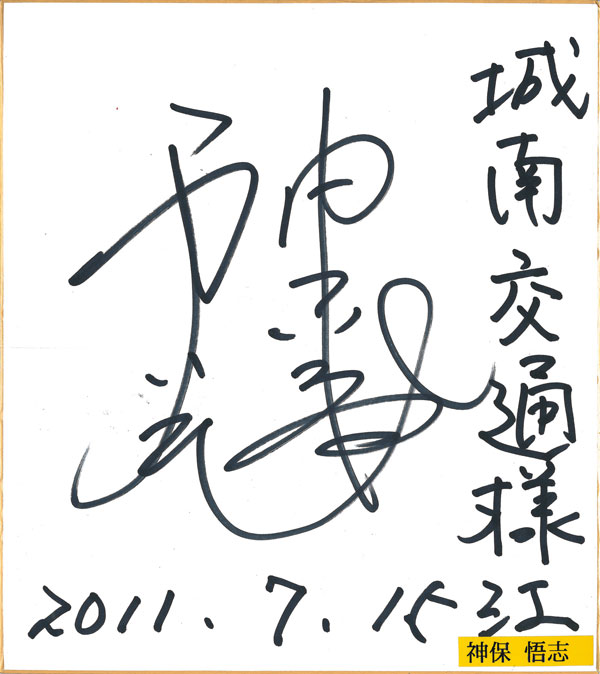 城南交通様江
2011.7.15
神保 悟志